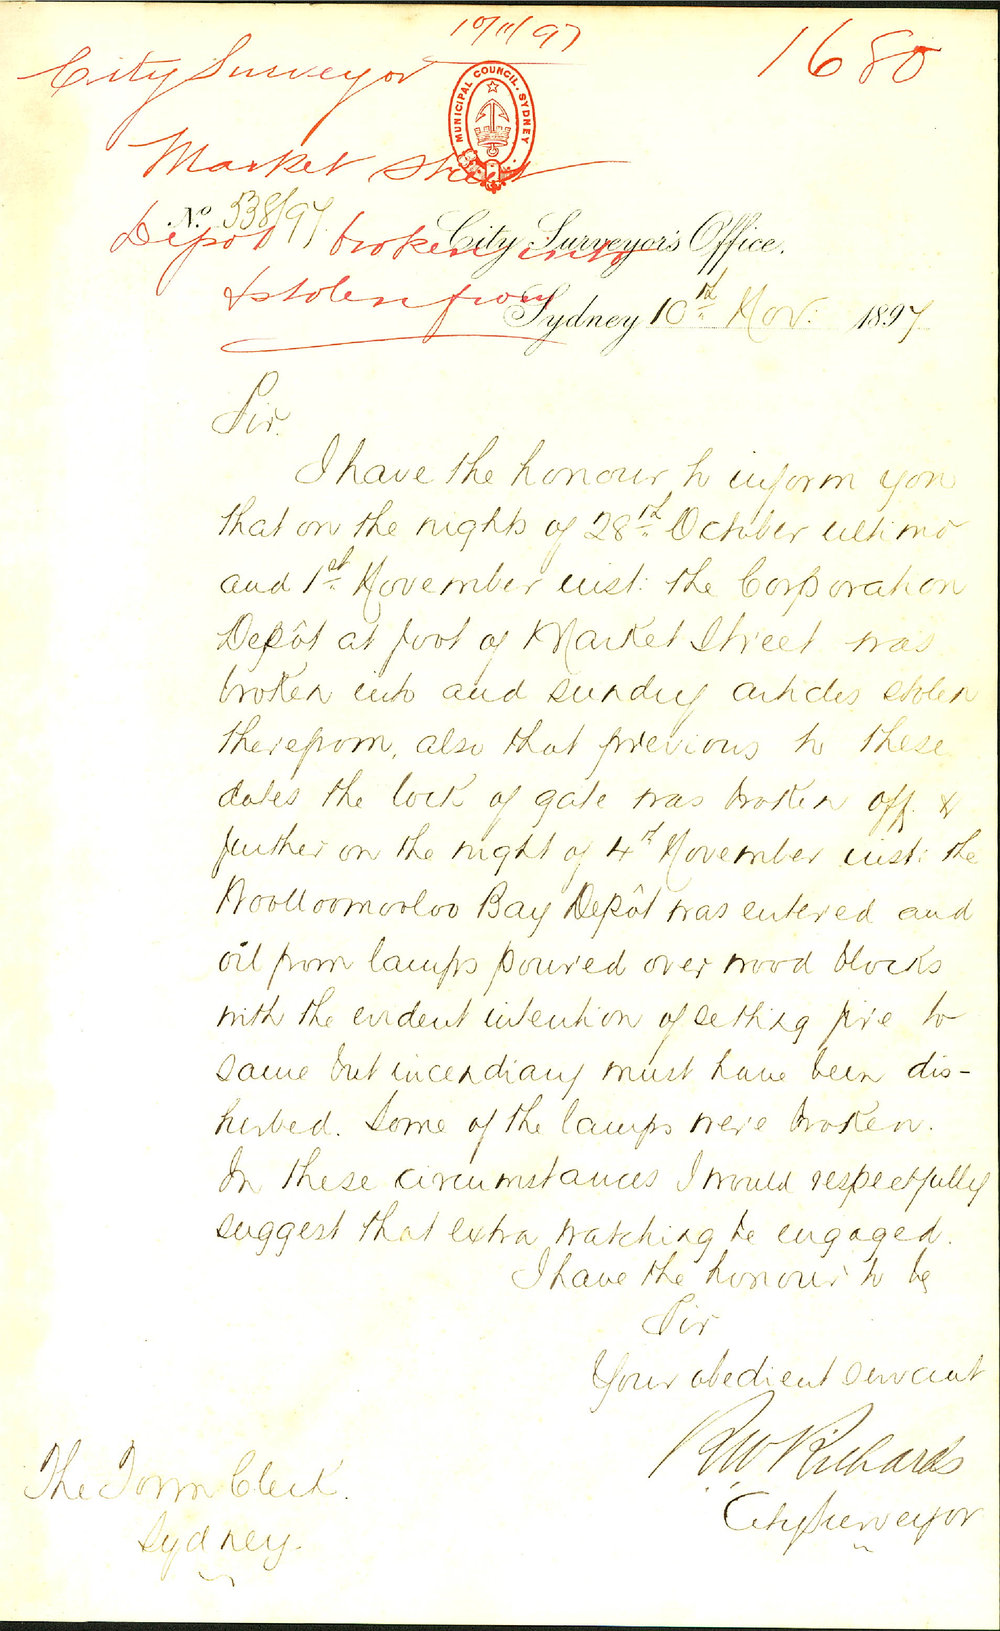 10/11/97
1680
City Surveyor
MUNICIPAL COUNCIL. SYDNEY
Market Street
No. 538/97.
Depot broken into
City Surveyor's Office.
& stolen from
Sydney 10th Nov: 1897
Sir.
I have the honour to inform you
that on the nights of 28th October ultimo
and 1st November inst: the Corporation
Depôt at foot of Market Street was
broken into and sundry articles stolen
therefrom, also that previous to these
dates the lock of gate was broken off &
further on the night of 4th November inst: the
Woolloomooloo Bay Depôt was entered and
oil from lamps poured over wood blocks
with the evident intention of setting fire to
same but incendiary must have been dis-
turbed. Some of the lamps were broken.
In these circumstances I would respectfully
suggest that extra watching be engaged.
I have the honour to be
Sir
Your obedient servant
RW Richards
City Surveyor
The Town Clerk.
Sydney.